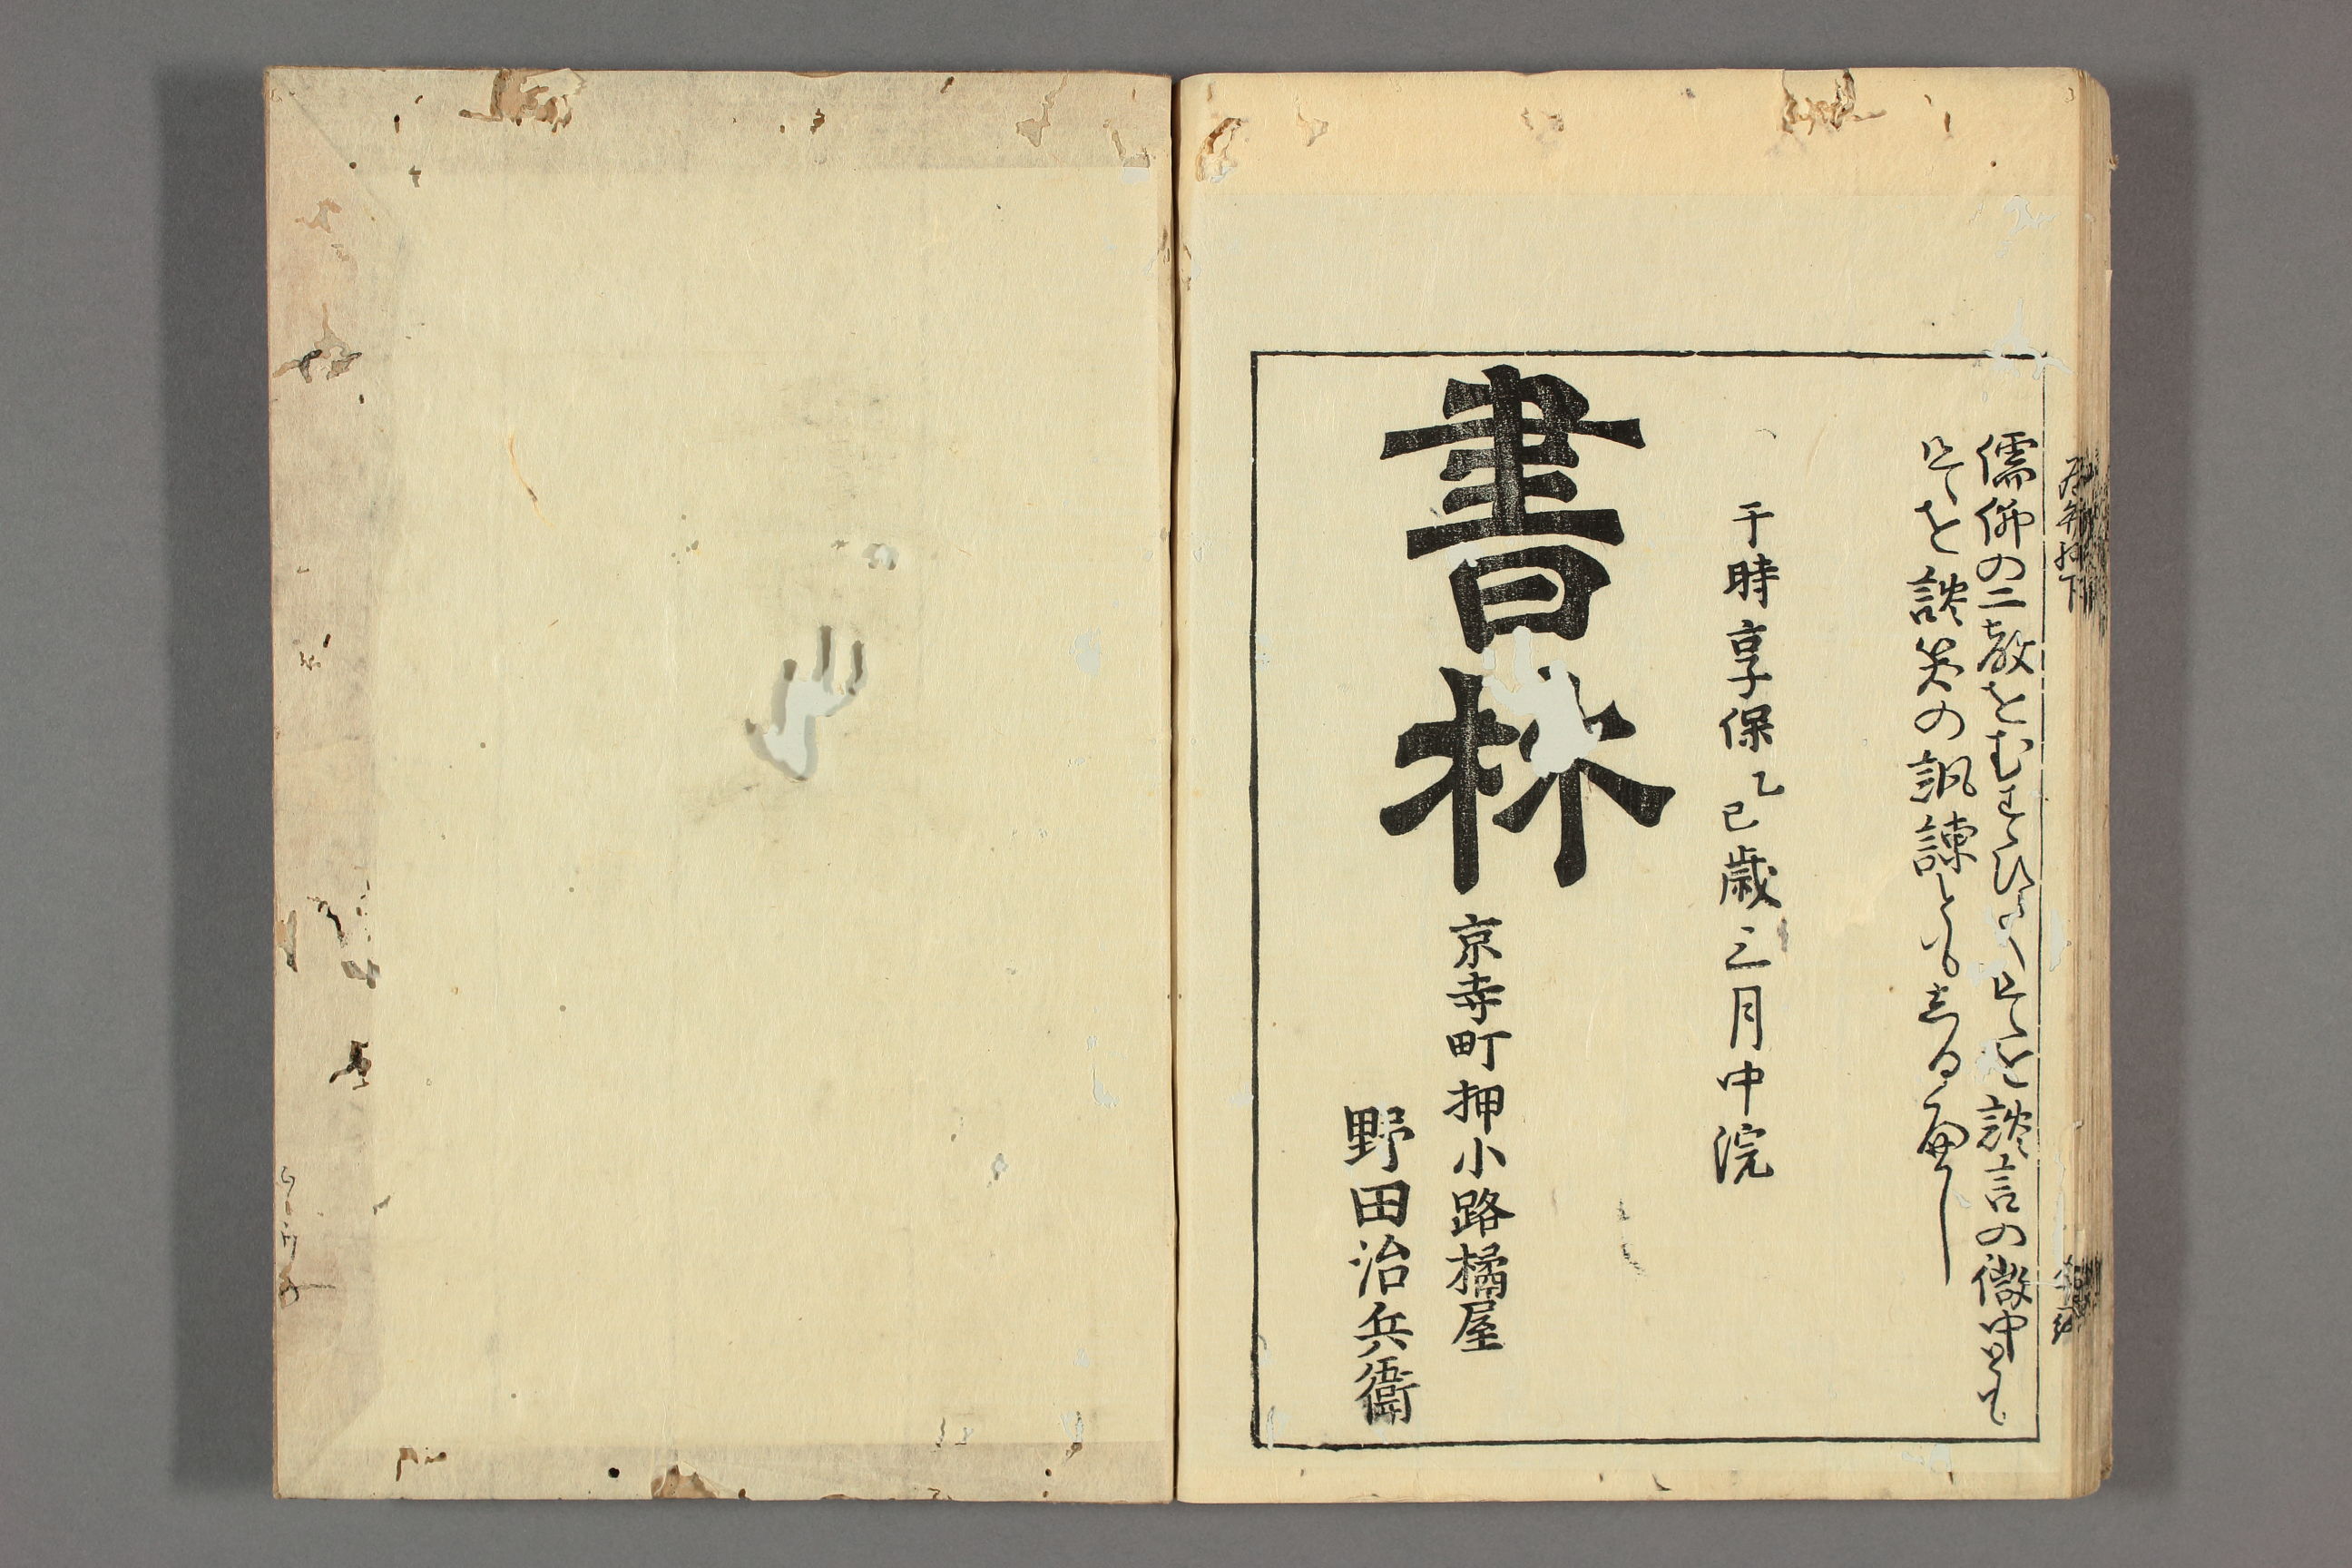 儒佛の二教をむすひて是を談言の微中とも
是を談笑の諷諫ともする而已
于時享保乙巳歳三月中浣
書林
京寺町押小路橘屋
野田治兵衛